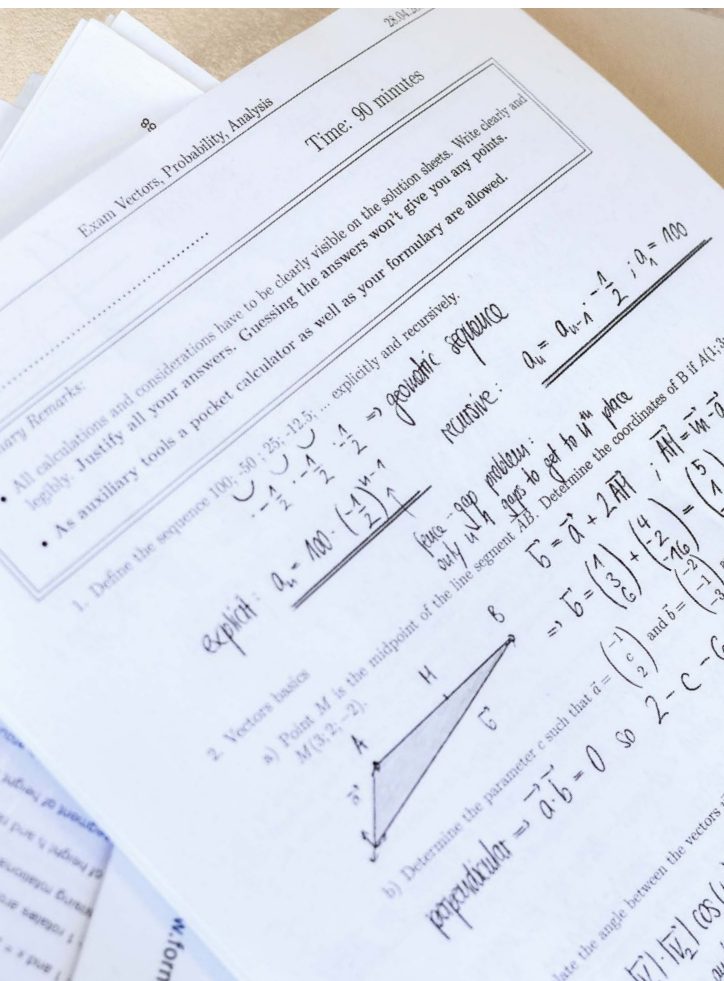 28.04.
Exam Vectors, Probability, Analysis
Time: 90 minutes
Remarks:
• All calculations and considerations have to be clearly visible on the solution sheets. Write clearly and
legibly. Justify all your answers. Guessing the answers won't give you any points.
• As auxiliary tools a pocket calculator as well as your formulary are allowed.
1. Define the sequence 100; -50 ; 25; -12.5; ... explicitly and recursively.
·-1/2 ·-1/2 ·-1/2 => geometric sequence
explicit: aₙ = 100 · (-1/2)ⁿ⁻¹
recursive: aₙ = aₙ₋₁ · -1/2 ; a₁ = 100
fence - gap problem:
only n-1 gaps to get to nᵗʰ place
2. Vectors basics
a) Point M is the midpoint of the line segment AB. Determine the coordinates of B if A(1; 3;
M(3; 2; −2).
A
M
B
a⃗
b⃗
b⃗ = a⃗ + 2AM⃗ ; AM⃗ = m⃗ - a⃗
=> b⃗ = (1 3 6) + (4 -2 -16) = (5 1
b) Determine the parameter c such that a⃗ = (−1 c 2) and b⃗ = (−2 −1 −3
perpendicular => a⃗ · b⃗ = 0 so 2 - c - 6
late the angle between the vectors
· |v₂⃗| cos(
w.form